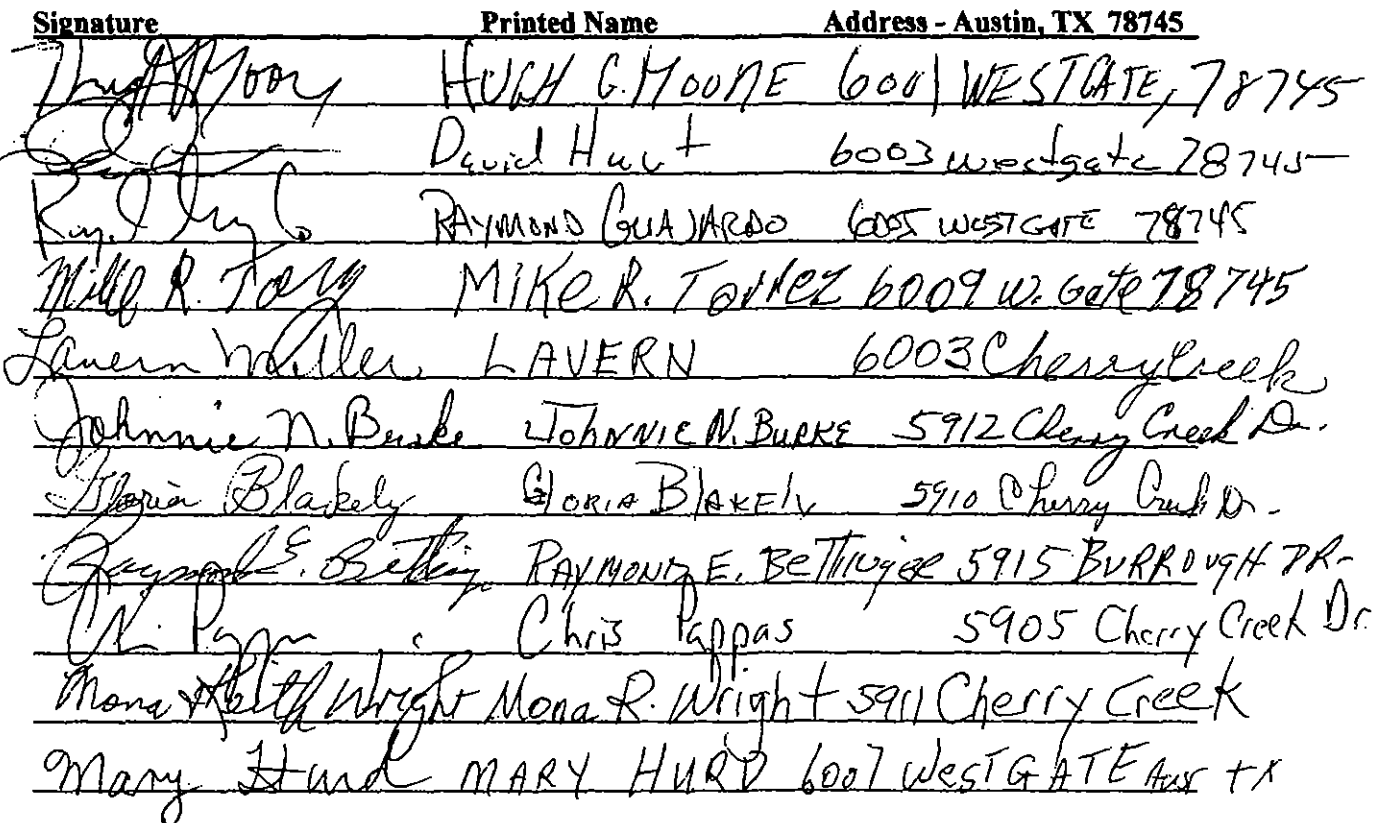 Signature Printed Name Address - Austin, TX 78745
HUGH G. MOORE 6001 WESTGATE, 78745
David Hunt 6003 westgate 78745
RAYMOND GUAJARDO 6005 WESTGATE 78745
Mike R. Torrez 6009 W. Gate 78745
Lavern Miller LAVERN 6003 Cherry Creek
Johnnie N. Burke JOHNNIE N. BURKE 5912 Cherry Creek Dr.
Gloria Blakely GLORIA BLAKELY 5910 Cherry Creek Dr.
Raymond E. RAYMOND E. 5915 BURROUGH DR.
Chris Pappas 5905 Cherry Creek Dr.
Mona & Keith Wright Mona R. Wright 5911 Cherry Creek
Mary Hurd MARY HURD 6007 WESTGATE Aus TX